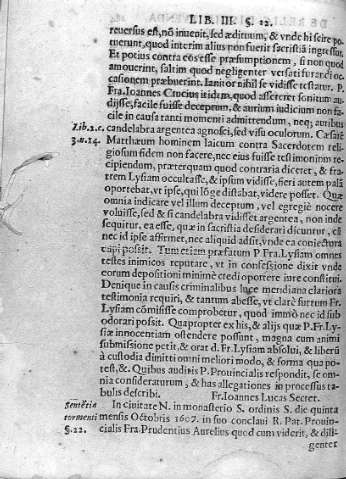 LIB. III. §. 22.
reuersus est, nō inuenit, sed ædituum, & vnde hi scire po-
tuerunt, quod interim alius non fuerit sacristiā ingressus
Et potius contra eos esse præsumptionem, si non oc-
amouerint, saltim quod negligenter versati furandi oc-
casionem præbuerint. Ianitor nihil se vidisse testatur. P.
Fra. Ioannes Crucius itidem, quod assereret sonitum au-
dijsse, facile fuisse deceptum, & aurium iudicium non fa-
cile in causa tanti momenti admittendum, neq; auribus
Lib. 2. c. candelabra argentea agnosci, sed visu oculorum. Cæsarē
3. n. 14. Matthæum hominem laicum contra Sacerdotem reli-
giosum fidem non facere, nec eius fuisse testimonium re-
cipiendum, præterquam quod contraria diceret, & fra-
trem Lysiam occultasse, & ipsum vidisse, fieri autem palā
oportebat, vt ipse, qui lōge distabat, videre posset. Quæ
omnia indicare vel illum deceptum, vel egregiè nocere
voluisse, sed & si candelabra vidisset argentea, non inde
sequitur, ea esse, quæ in sacristia desiderari dicuntur, cū
nec id ipse affirmet, nec aliquid adsit, vnde ea coniectura
capi possit. Tum etiam præfatum P. Fra. Lysiam omnes
testes inimicos reputare, vt in confessione dixit vnde
eorum depositioni minimè credi oportere iure constitui.
Denique in causis criminalibus luce meridiana clariora
testimonia requiri, & tantum abesse, vt clarè furtum Fr.
Lysiam cōmisisse comprobetur, quod immò nec id sub-
odorari possit. Quapropter ex his, & alijs quæ P. Fr. Ly-
siæ innocentiam ostendere possunt, magna cum animi
submissione petit, & orat d. Fr. Lysiam absolui, & liberū
à custodia dimitti omni meliori modo, & forma quo po-
test, &c. Quibus auditis P. Prouincialis respondit, se om-
nia consideraturum, & has allegationes in processus ta-
bulis describi. Fr. Ioannes Lucas Secret.
Sentētia In ciuitate N. in monasterio S. ordinis S. die quinta
tormenti mensis Octobris 1607. in suo conclaui R. Pat. Prouin-
§. 22. cialis Fra. Prudentius Aurelius quod cum viderit, & dili-
genter